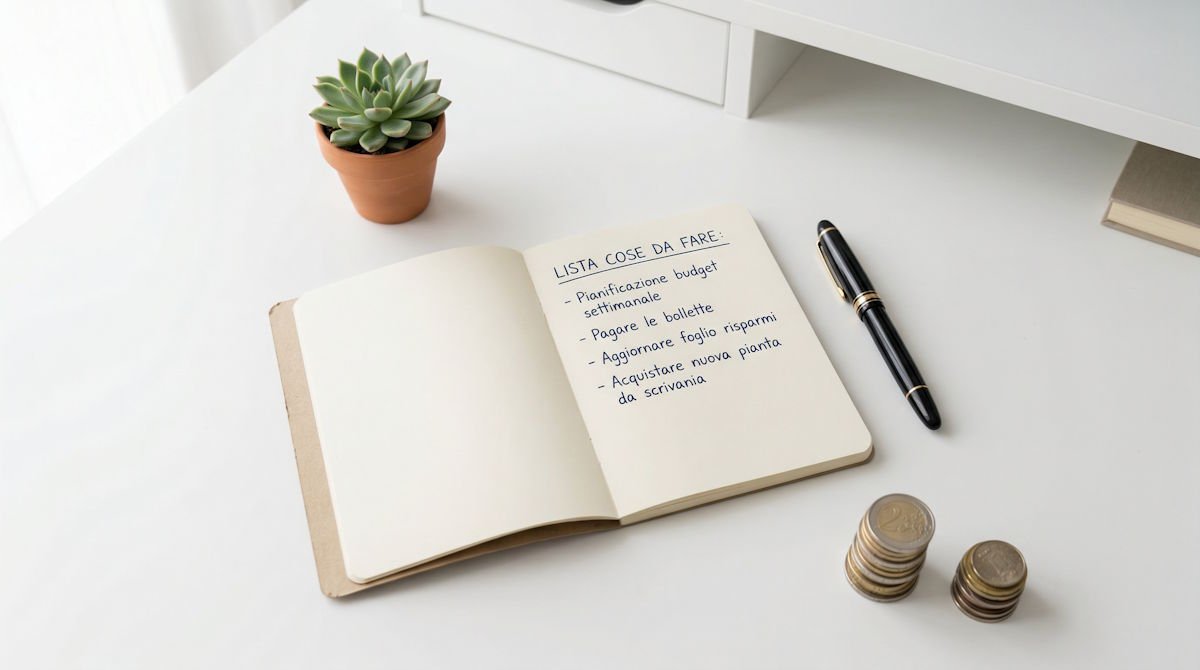 LISTA COSE DA FARE:
- Pianificazione budget
settimanale
- Pagare le bollette
- Aggiornare foglio risparmi
- Acquistare nuova pianta
da scrivania
2